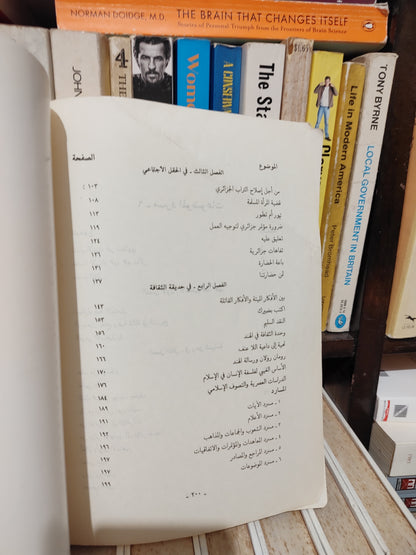 NORMAN DOIDGE, M.D. THE BRAIN THAT CHANGES ITSELF
Stories of Personal Triumph from the Frontiers of Brain Science
JOHN
4
Wome
A CONSERV
The Sta
$1.65
Glory
Peter Bromhead
Life in Modern America
TONY BYRNE
LOCAL GOVERNMENT IN BRITAIN
الموضوع الصفحة
الفصل الثالث ـ في الحقل الاجتماعي
من أجل إصلاح التراب الجزائري ١٠٣
قضية المرأة المسلمة ١٠٨
تثور أم تطور ١١٣
ضرورة مؤتمر جزائري لتوجيه العمل ١١٩
تعليق عليه ١٢٤
تفاهات جزائرية ١٢٧
باعة الحضارة ١٣٢
ثمن حضارتنا ١٣٧
الفصل الرابع ـ في حديقة الثقافة
بين الأفكار الميتة والأفكار القاتلة ١٤٣
اكتب بضميرك
النقد السليم ١٥٣
وحدة الثقافة في الهند ١٥٦
تحية إلى داعية اللا عنف ١٦٠
رومان رولان ورسالة الهند
الأساس الغيبي لفلسفة الإنسان في الإسلام ١٧٠
الدراسات العصرية والتصوف الإسلامي
المسارد
١ ـ مسرد الآيات
٢ ـ مسرد الأعلام
٣ ـ مسرد الشعوب والجماعات والمذاهب
٤ ـ مسرد المعاهدات والمؤتمرات والاتفاقيات
٥ ـ مسرد المراجع والمصادر ١٩٧
٦ ـ مسرد الموضوعات ١٩٩
ـ ٢٠٠ ـ